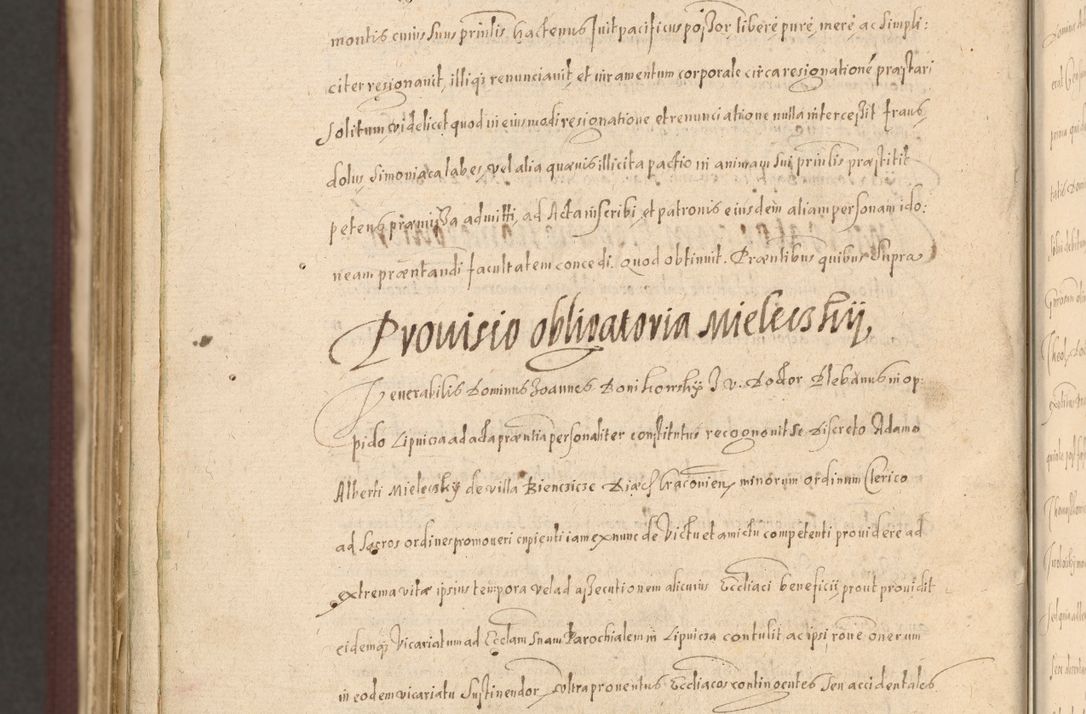 montis cuius suus prntis hactenus fuit pacificus possor libere pure, mere ac simpli:
citer resignauit, illiqȝ renunciauit, et iuramentum corporale circa resignationē præstari
solitum videlicet quod in eiusmodi resignatione et renunciatione nulla intercessit fraus,
dolus, simoniaca labes, vel alia quæuis illicita pactio in animam sui prntis præstitit
petens præmissa admitti, ad Acta inscribi, et patronis eiusdem aliam personam ido:
neam præntandi facultatem concedi. Quod obtinuit. Præntibus quibus supra
Prouisio obligatoria Mieleczkij,
Venerabilis Dominus Joannes Donikowskij J. v. Doctor Plebanus in op:
pido Lipnica ad acta præntia personaliter constitutus recognouit se discreto Adamo
Alberti Mieleczkij de villa Bienczicze Diæc. Cracouien, minorum ordinum Clerico
ad sacros ordines promoueri cupienti iam ex nunc de victu et amictu competenti prouidere ad
extrema vitæ ipsius tempora vel ad assecutionem alicuius Eccliaci beneficij prout prouidit
eidemqȝ vicariatum ad Ecclam suam Parochialem in Lipnicza contulit ac ipsi rone onerum
in eodem vicariatu sustinendor, vltra prouentus Eccliacos continoentes seu accidentales